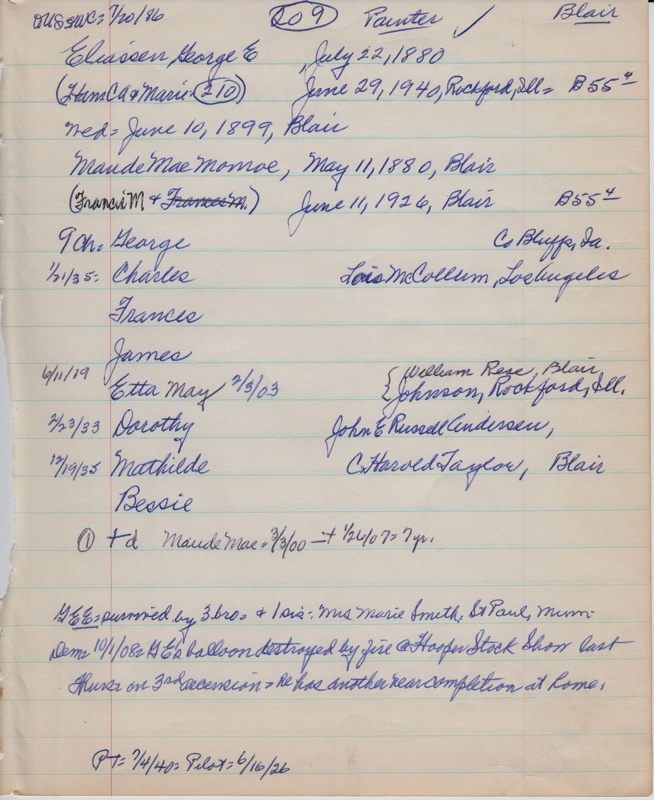 7/20/86 209 Painter ✓ Blair
Eliassen, George E , July 22, 1880
(Ham CA & Marie 210) June 29, 1940, Rockford, Ill = B 55 4
Wed = June 10, 1899, Blair
Maude Mae Monroe, May 11, 1880, Blair
(Francis M & Frances M.) June 11, 1926, Blair B 55 4
9 Ch: George Co Bluffs, Ia.
1/21/35 = Charles Lois McCollum, Los Angeles
Frances
James
6/11/19 { William Rose, Blair
Etta May 2/3/03 Johnson, Rockford, Ill.
2/23/33 Dorothy John E Russell Andersen,
12/19/35 Mathilde C. Harold Taylor, Blair
Bessie
① + d Maude Mae = 3/3/00 — + 1/26/07 = 7 yr.
GEE = survived by 3 bro = + 1 sis = Mrs Marie Smith, St Paul, Minn =
Dem = 10/1/08 = GE's balloon destroyed by fire @ Hooper Stock Show last
Thurs = on 3rd ascension = he has another near completion at home.
PT = 7/4/40 = Pilot = 6/16/26